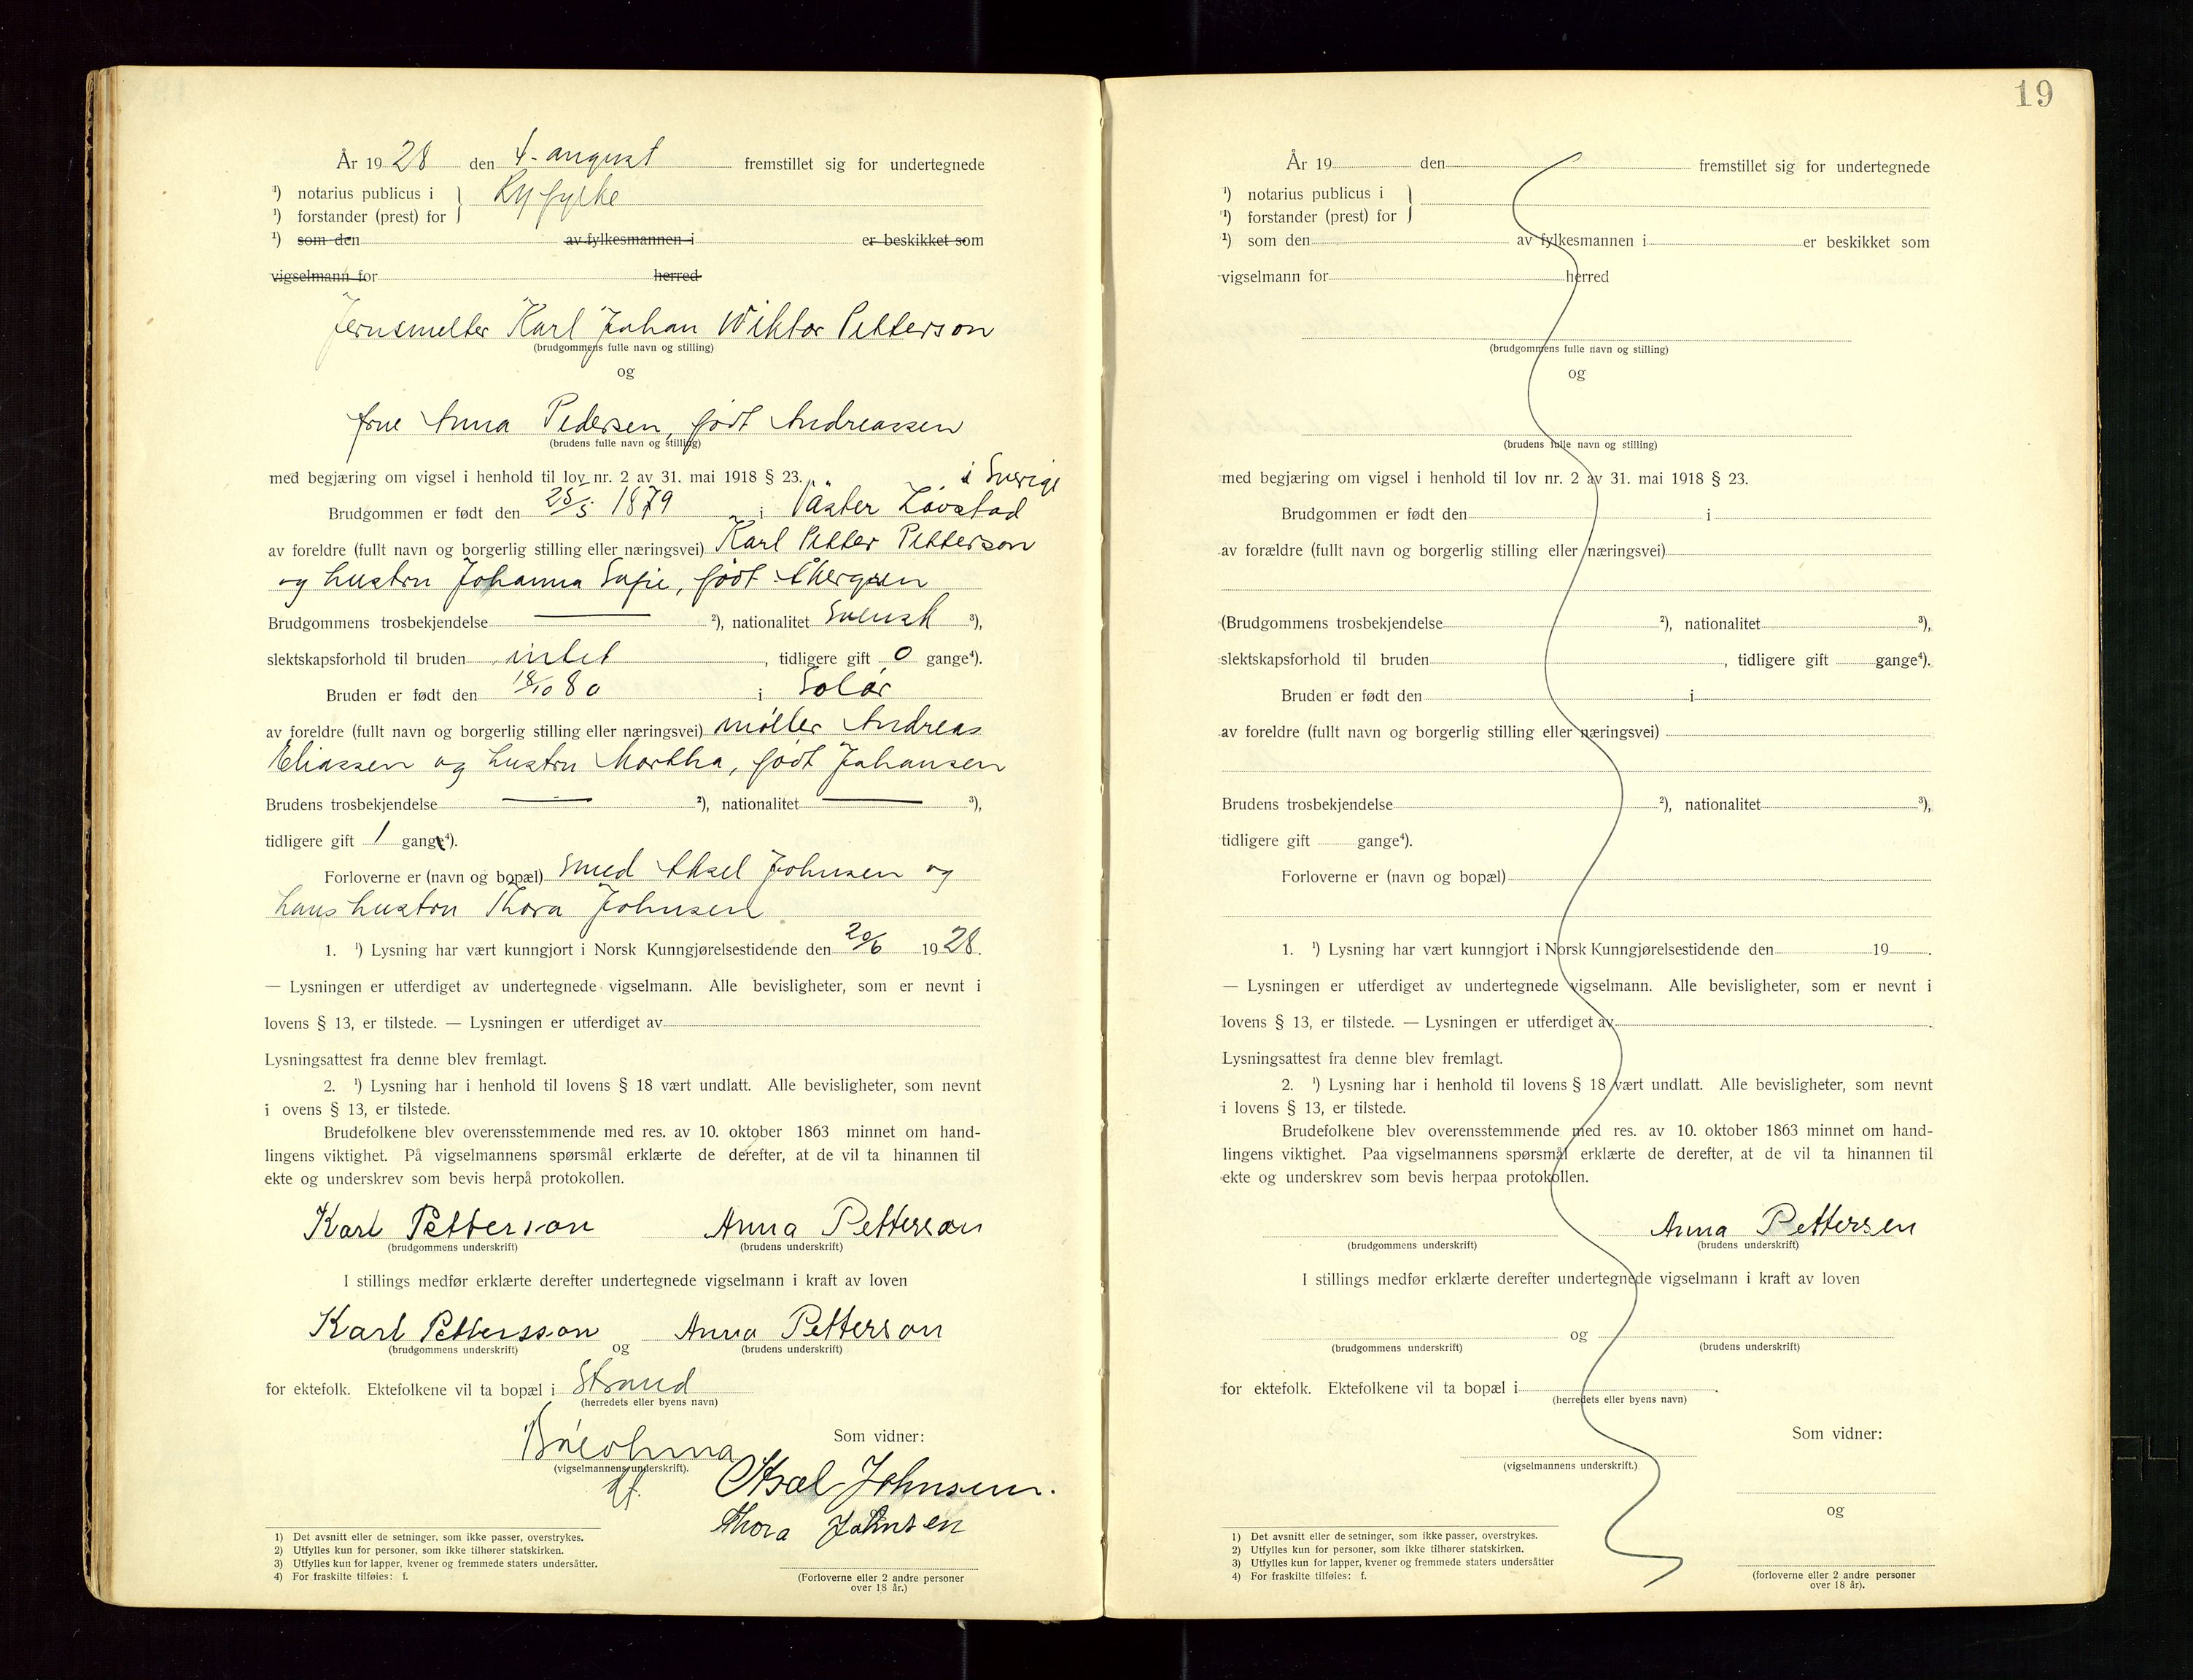 År 1928 den 4. august fremstillet sig for undertegnede
¹) notarius publicus i } Ryfylke
¹) forstander (prest) for
¹) som den av fylkesmannen i er beskikket som
vigselmann for herred
Jernsmelter Karl Johan Wiktor Petterson
(brudgommens fulle navn og stilling)
og
frue Anna Pedersen, født Andreassen
(brudens fulle navn og stilling)
med begjæring om vigsel i henhold til lov nr. 2 av 31. mai 1918 § 23.
i Sverige
Brudgommen er født den 25/5 1879 i Väster Lövstad
av foreldre (fullt navn og borgerlig stilling eller næringsvei) Karl Petter Petterson
og hustru Johanna Sofie, født
Brudgommens trosbekjendelse — ²), nationalitet Svensk ³),
slektskapsforhold til bruden intet, tidligere gift 0 gange⁴).
Bruden er født den 18/10 80 i Solør
av foreldre (fullt navn og borgerlig stilling eller næringsvei) møller Andreas
Eliassen og hustru Martha, født Johansen
Brudens trosbekjendelse — ²), nationalitet — ³),
tidligere gift 1 gang⁴).
Forloverne er (navn og bopæl) Smed Aksel Johnsen og
hans hustru Thora Johnsen
1. ¹) Lysning har vært kunngjort i Norsk Kunngjørelsestidende den 20/6 1928.
— Lysningen er utferdiget av undertegnede vigselmann. Alle bevisligheter, som er nevnt i
lovens § 13, er tilstede. — Lysningen er utferdiget av
Lysningsattest fra denne blev fremlagt.
2. ¹) Lysning har i henhold til lovens § 18 vært undlatt. Alle bevisligheter, som nevnt
i ovens § 13, er tilstede.
Brudefolkene blev overensstemmende med res. av 10. oktober 1863 minnet om hand-
lingens viktighet. På vigselmannens spørsmål erklærte de derefter, at de vil ta hinannen til
ekte og underskrev som bevis herpå protokollen.
Karl Petterson Anna Petterson
(brudgommens underskrift) (brudens underskrift)
I stillings medfør erklærte derefter undertegnede vigselmann i kraft av loven
Karl Pettersson og Anna Petterson
(brudgommens underskrift) (brudens underskrift)
for ektefolk. Ektefolkene vil ta bopæl i Strand
(herredets eller byens navn)
Som vidner:
(vigselmannens underskrift).
Aksel Johnsen.
Thora Johnsen
1) Det avsnitt eller de setninger, som ikke passer, overstrykes.
2) Utfylles kun for personer, som ikke tilhører statskirken.
3) Utfylles kun for lapper, kvener og fremmede staters undersåtter.
4) For fraskilte tilføies: f.
(Forloverne eller 2 andre personer
over 18 år.)
19
År 19 den fremstillet sig for undertegnede
¹) notarius publicus i }
¹) forstander (prest) for
¹) som den av fylkesmannen i er beskikket som
vigselmann for herred
(brudgommens fulle navn og stilling)
og
(brudens fulle navn og stilling)
med begjæring om vigsel i henhold til lov nr. 2 av 31. mai 1918 § 23.
Brudgommen er født den i
av forældre (fullt navn og borgerlig stilling eller næringsvei)
(Brudgommens trosbekjendelse ²), nationalitet ³),
slektskapsforhold til bruden , tidligere gift gange⁴).
Bruden er født den i
av foreldre (fullt navn og borgerlig stilling eller næringsvei)
Brudens trosbekjendelse ²), nationalitet ³),
tidligere gift gange⁴).
Forloverne er (navn og bopæl)
1. ¹) Lysning har vært kunngjort i Norsk Kunngjørelsestidende den 19 .
— Lysningen er utferdiget av undertegnede vigselmann. Alle bevisligheter, som er nevnt i
lovens § 13, er tilstede. — Lysningen er utferdiget av .
Lysningsattest fra denne blev fremlagt.
2. ¹) Lysning har i henhold til lovens § 18 vært undlatt. Alle bevisligheter, som nevnt
i lovens § 13, er tilstede.
Brudefolkene blev overensstemmende med res. av 10. oktober 1863 minnet om hand-
lingens viktighet. Paa vigselmannens spørsmål erklærte de derefter, at de vil ta hinannen til
ekte og underskrev som bevis herpaa protokollen.
Anna Pettersen
(brudgommens underskrift) (brudens underskrift)
I stillings medfør erklærte derefter undertegnede vigselmann i kraft av loven
og
(brudgommens underskrift) (brudens underskrift)
for ektefolk. Ektefolkene vil ta bopæl i .
(herredets eller byens navn)
Som vidner:
(vigselmannens underskrift.)
og
1) Det avsnitt eller de setninger, som ikke passer, overstrykes.
2) Utfylles kun for personer, som ikke tilhører statskirken.
3) Utfylles kun for lapper, kvener og fremmede staters undersåtter
4) For fraskilte tilføies: f.
(forloverne eller 2 andre personer
over 18 år).